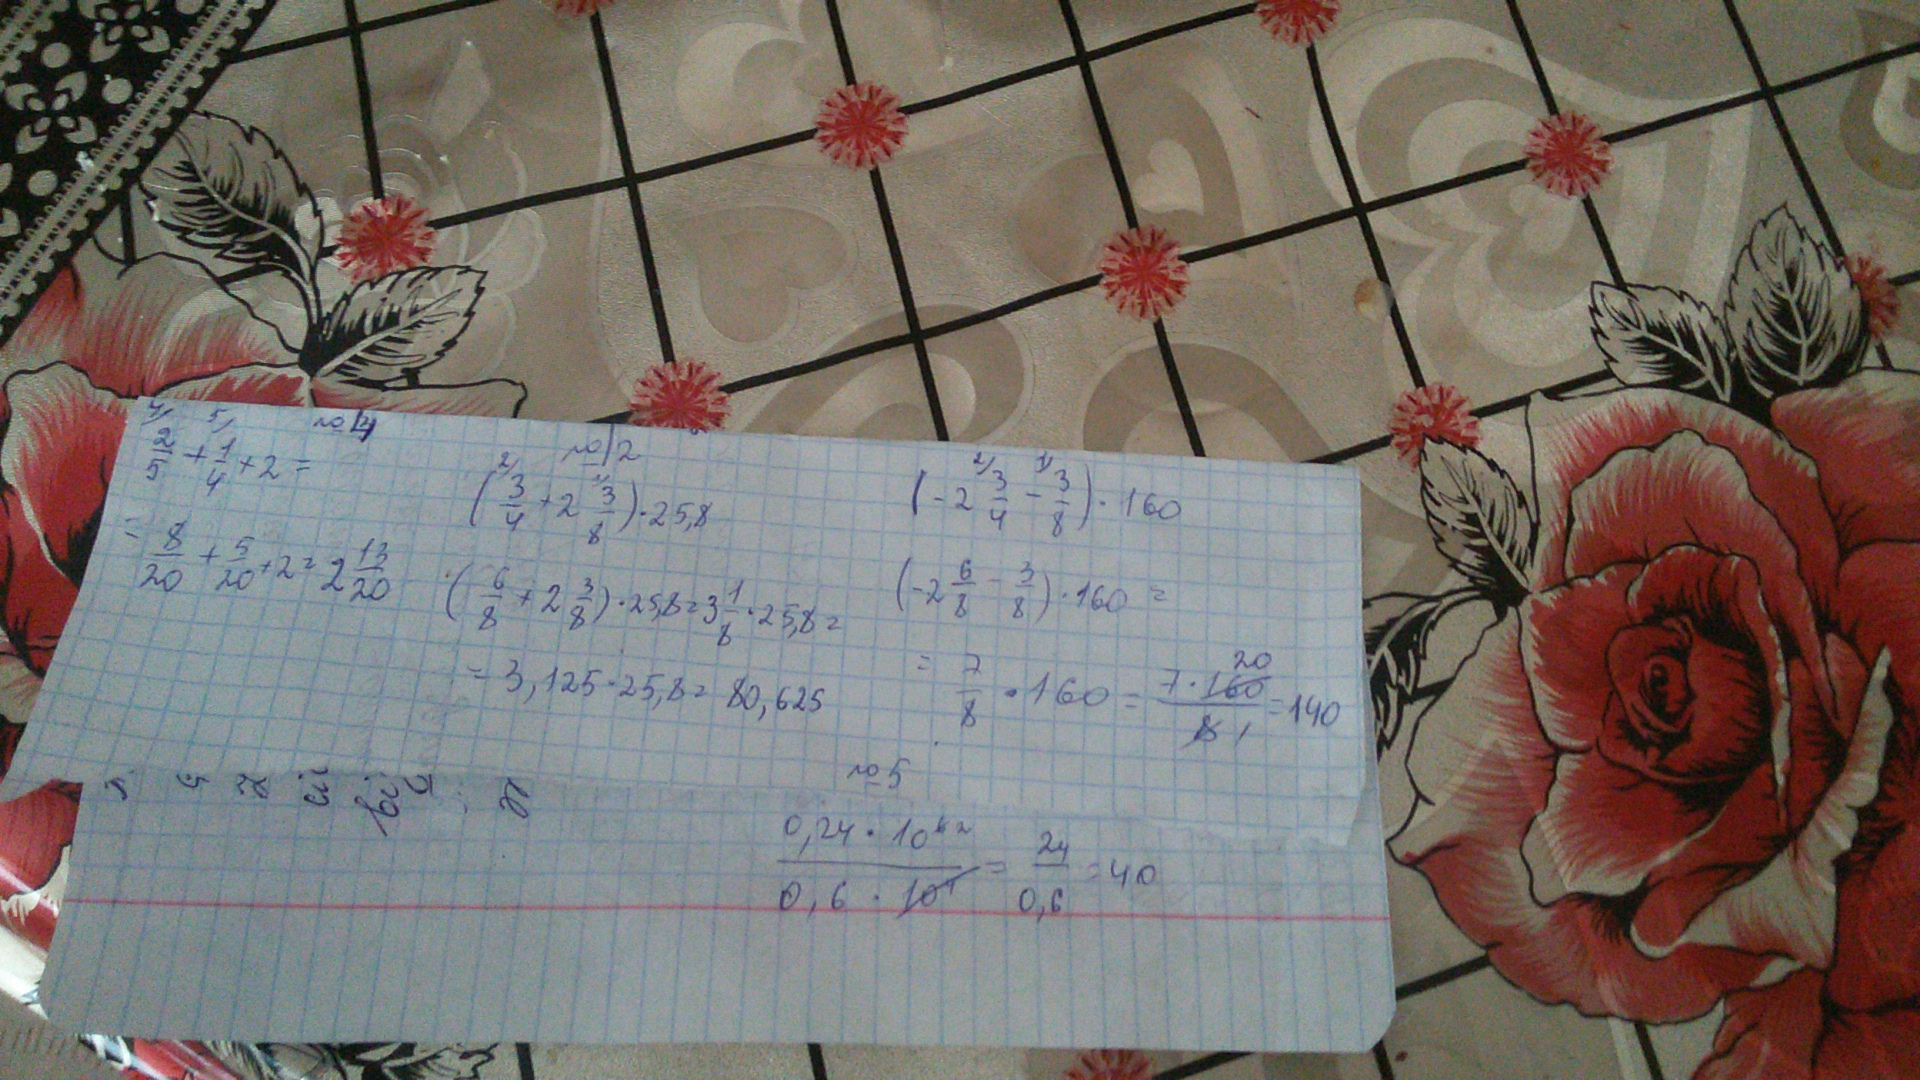 2/5 + 1/4 + 2 =
= 8/20 + 5/20 + 2 = 2 13/20
№ 2
(3/4 + 2 3/8) · 25,8
(6/8 + 2 3/8) · 25,8 = 3 1/8 · 25,8 =
= 3,125 · 25,8 = 80,625
(-2 3/4 - 3/8) · 160
(-2 6/8 - 3/8) · 160 =
= 7/8 · 160 = 7 · 160/8 = 140
20
1
№ 5
0,24 · 10² / 0,6 · 10¹ = 24/0,6 = 40